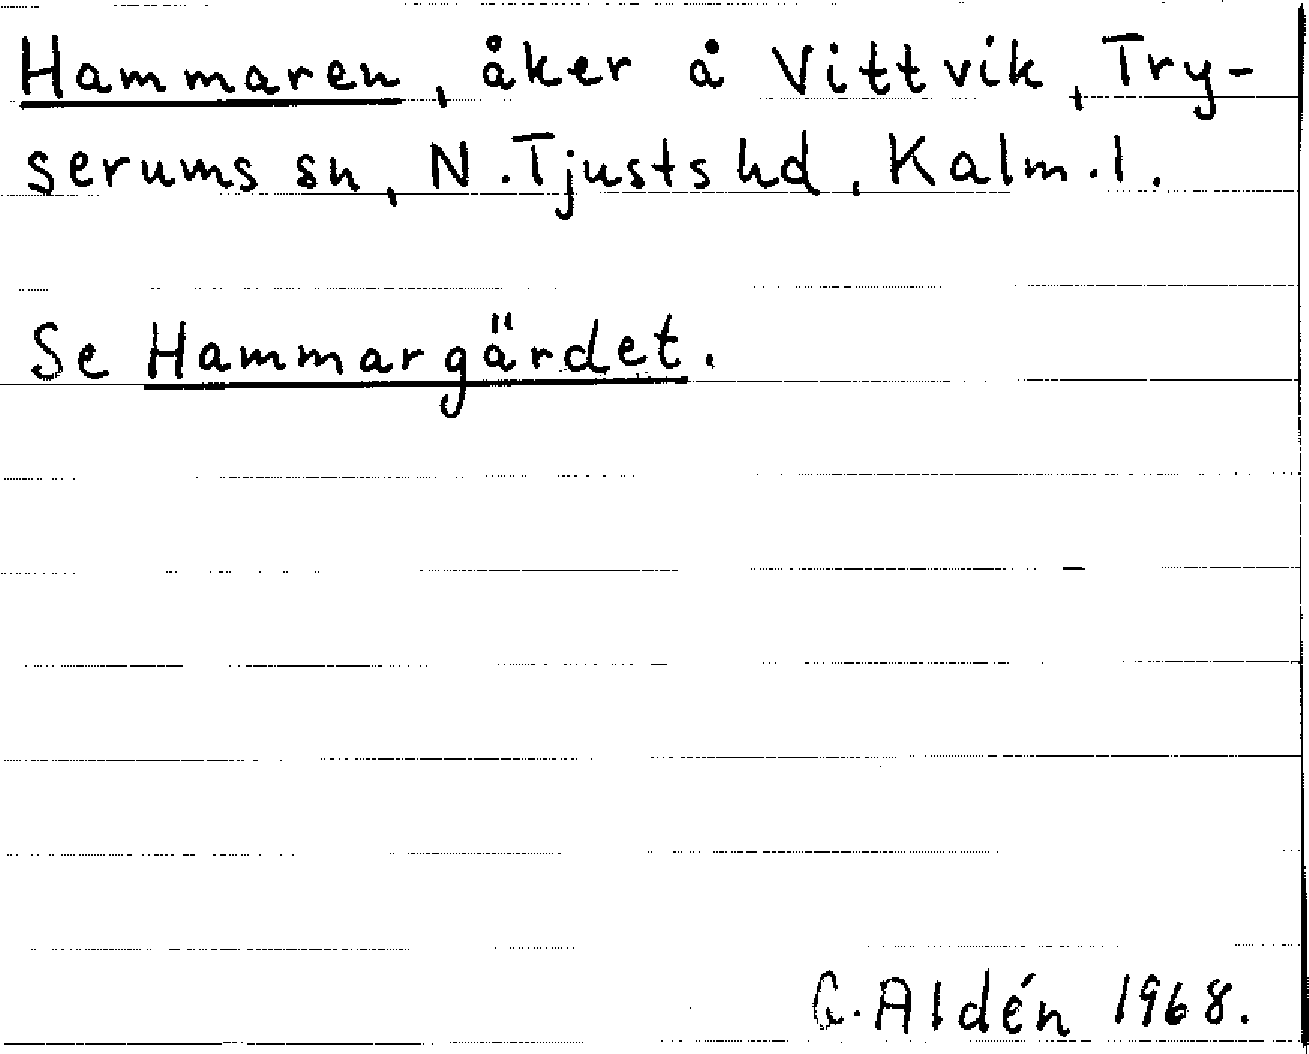 Hammaren, åker å Vittvik, Try-
serums sn, N. Tjusts hd, Kalm. l.
Se Hammargärdet.
G. Aldén 1968.